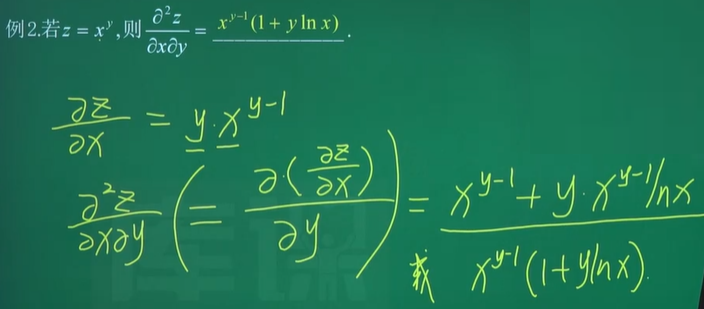 例2.若z = x^y,则 ∂²z/∂x∂y = x^{y-1}(1 + y ln x) .
∂z/∂x = y·x^{y-1}
∂²z/∂x∂y (= ∂(∂z/∂x)/∂y) = x^{y-1} + y·x^{y-1} lnx
或 x^{y-1}(1+ylnx).
库课